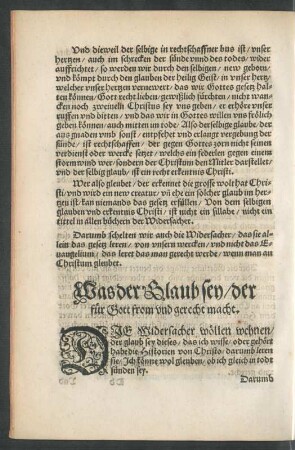 Vnd dieweil der selbige in rechtschaffner bus ist / vnser
hertzen / auch im schrecken der sünde vnnd des todes / wider
auffrichtet / so werden wir durch den selbigen / new geborn /
vnd kömpt durch den glauben der heilig Geist / in vnser hertz /
welcher vnser hertzen vernewert / das wir Gottes gesetz hal-
ten können / Gott recht lieben / gewislich fürchten / nicht wan-
cken noch zweiueln Christus sey vns geben / er erhöre vnser
ruffen vnd bitten / vnd das wir in Gottes willen vns frölich
geben können / auch mitten im tode / Also der selbige glaube / der
aus gnaden vmb sonst / empfehet vnd erlanget vergebung der
sünde / ist rechtschaffen / der gegen Gottes zorn nicht seinen
verdienst oder werck setzet / welchs ein federlen gegen einem
stormwind wer / sondern der Christum den Mitler darstellet /
vnd der selbig glaub / ist ein recht erkentnis Christi.
Wer also gleubet / der erkennet die grosse wolthat Chri-
sti / vnd wird ein new creatur / vnd ehe ein solcher glaub im her-
tzen ist / kan niemands das gesetz erfüllen. Von dem selbigen
glauben vnd erkentnis Christi / ist nicht ein sillabe / nicht ein
tittel in allen büchern der Widersacher.
Darumb schelten wir auch die Widersacher / das sie al-
lein das gesetz leren / von vnsern wercken / vnd nicht das E-
uangelium / das leret das man gerecht werde / wenn man an
Christum gleubet.
Was der Glaub sey / der
für Gott from vnd gerecht macht.
DIE Widersacher wöllen wehnen /
der glaub sey dieses / das ich wisse / oder gehört
habe die Historien von Christo / darumb leren
sie / Ich könne wol gleuben / ob ich gleich in tod
sünden sey.
Darumb